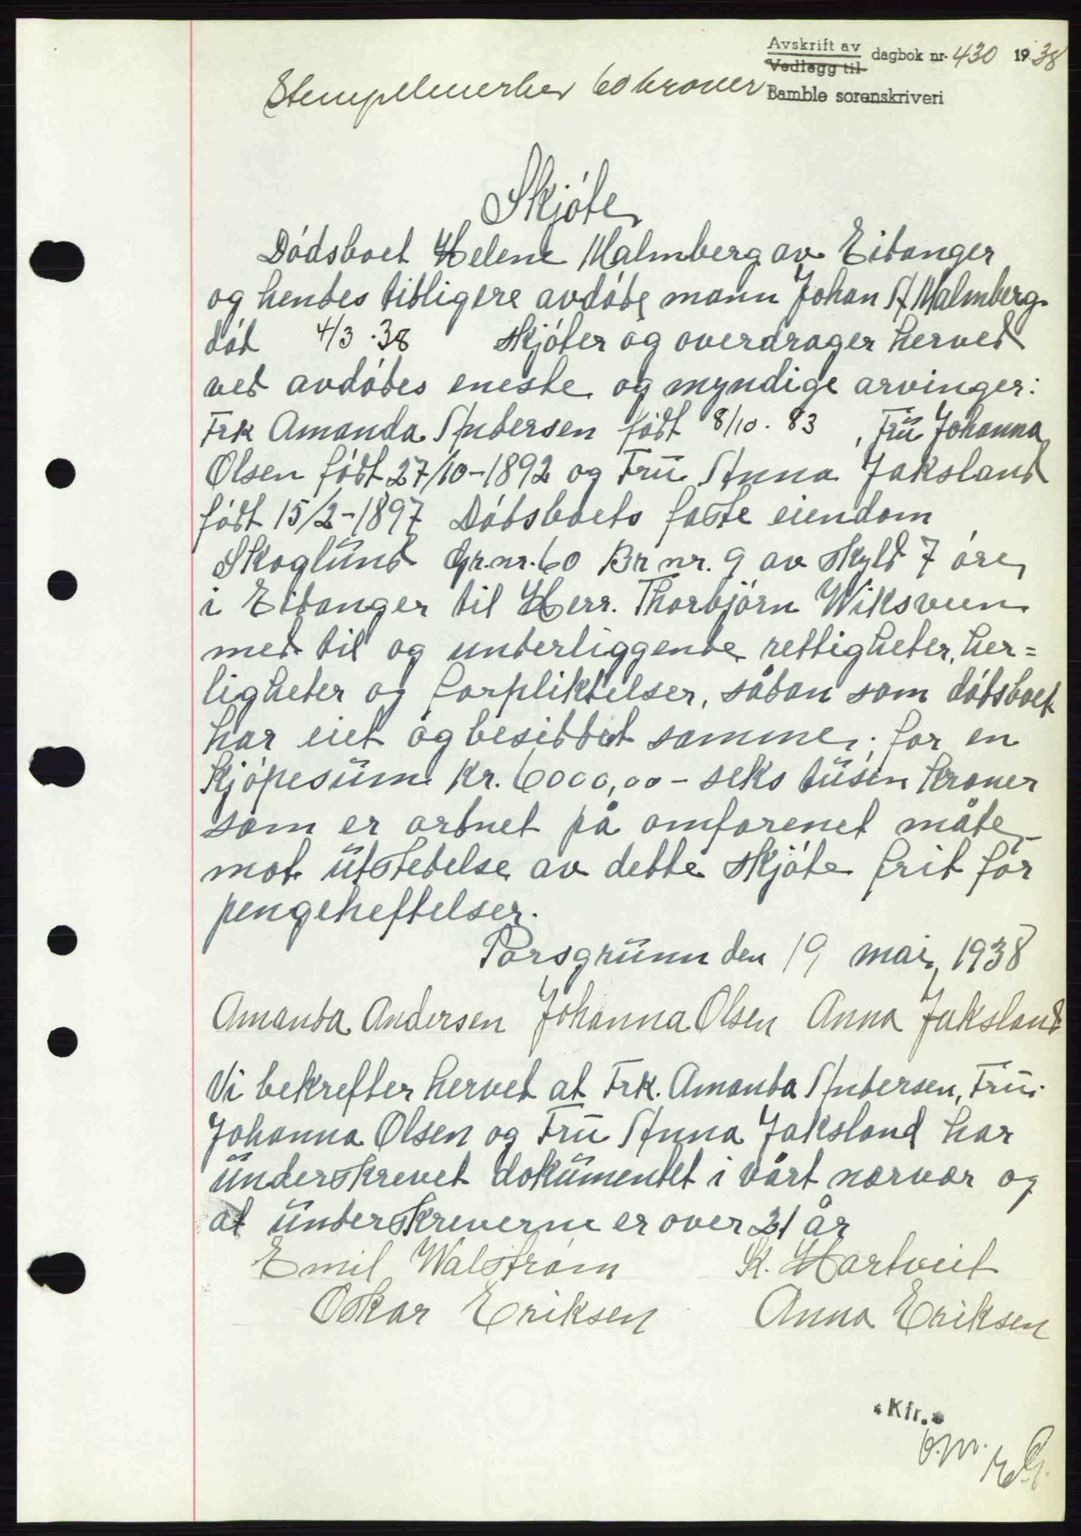 Avskrift av
Vedlegg til
dagbok nr. 430 1938
Bamble sorenskriveri
Stempelmerker 60 kroner
Skjöte
Dödsboet Helene Malmberg av Eidanger
og hendes tidligere avdöde mann Johan A. Malmberg
död 4/3.38 skjöter og overdrager herved
ved avdödes eneste og myndige arvinger:
Frk Amanda Andersen född 8/10.83, Frü Johanna
Olsen född 27/10-1892 og Frü Anna Jaksland
född 15/2-1897 Dödsboets faste eiendom
Skoglünd Gr.nr. 60 Br nr. 9 av skyld 7 öre,
i Eidanger til Herr. Thorbjörn Wiksveen
med til og underliggende rettigheter, her=
ligheter og forpliktelser, sådan som dödsboet
har eiet og besiddet samme; for en
kjöpesüm Kr. 6000,00 - seks tüsin kroner
som er ordnet på omforenet måte
mot ütstedelse av dette skjöte frit for
pengeheftelser.
Porsgrünn den 19 mai, 1938
Amanda Andersen Johanna Olsen Anna Jaksland
Vi bekrefter herved at Frk. Amanda Andersen, Frü.
Johanna Olsen og Frü Anna Jaksland har
ünderskrevet dokümentet i vårt nærvær og
at ünderskreverne er over 21 år
Emil Walstrøm K. Hartveit
Oskar Eriksen Anna Eriksen
Kfr.